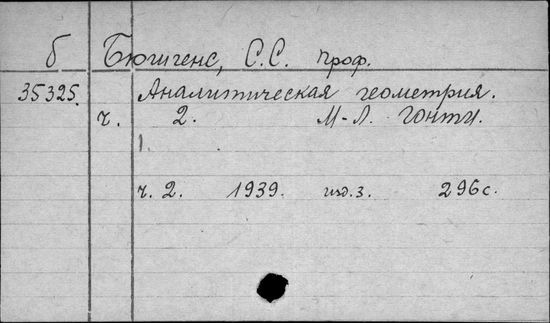 б Бюшгенс, С.С. проф.
35325. Аналитическая геометрия.
ч. 2. М-Л. ГОНТИ.
1.
ч. 2. 1939. изд. 3. 296 с.